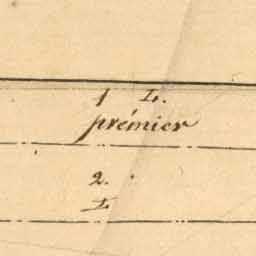 1 L.
prémier
2.
L